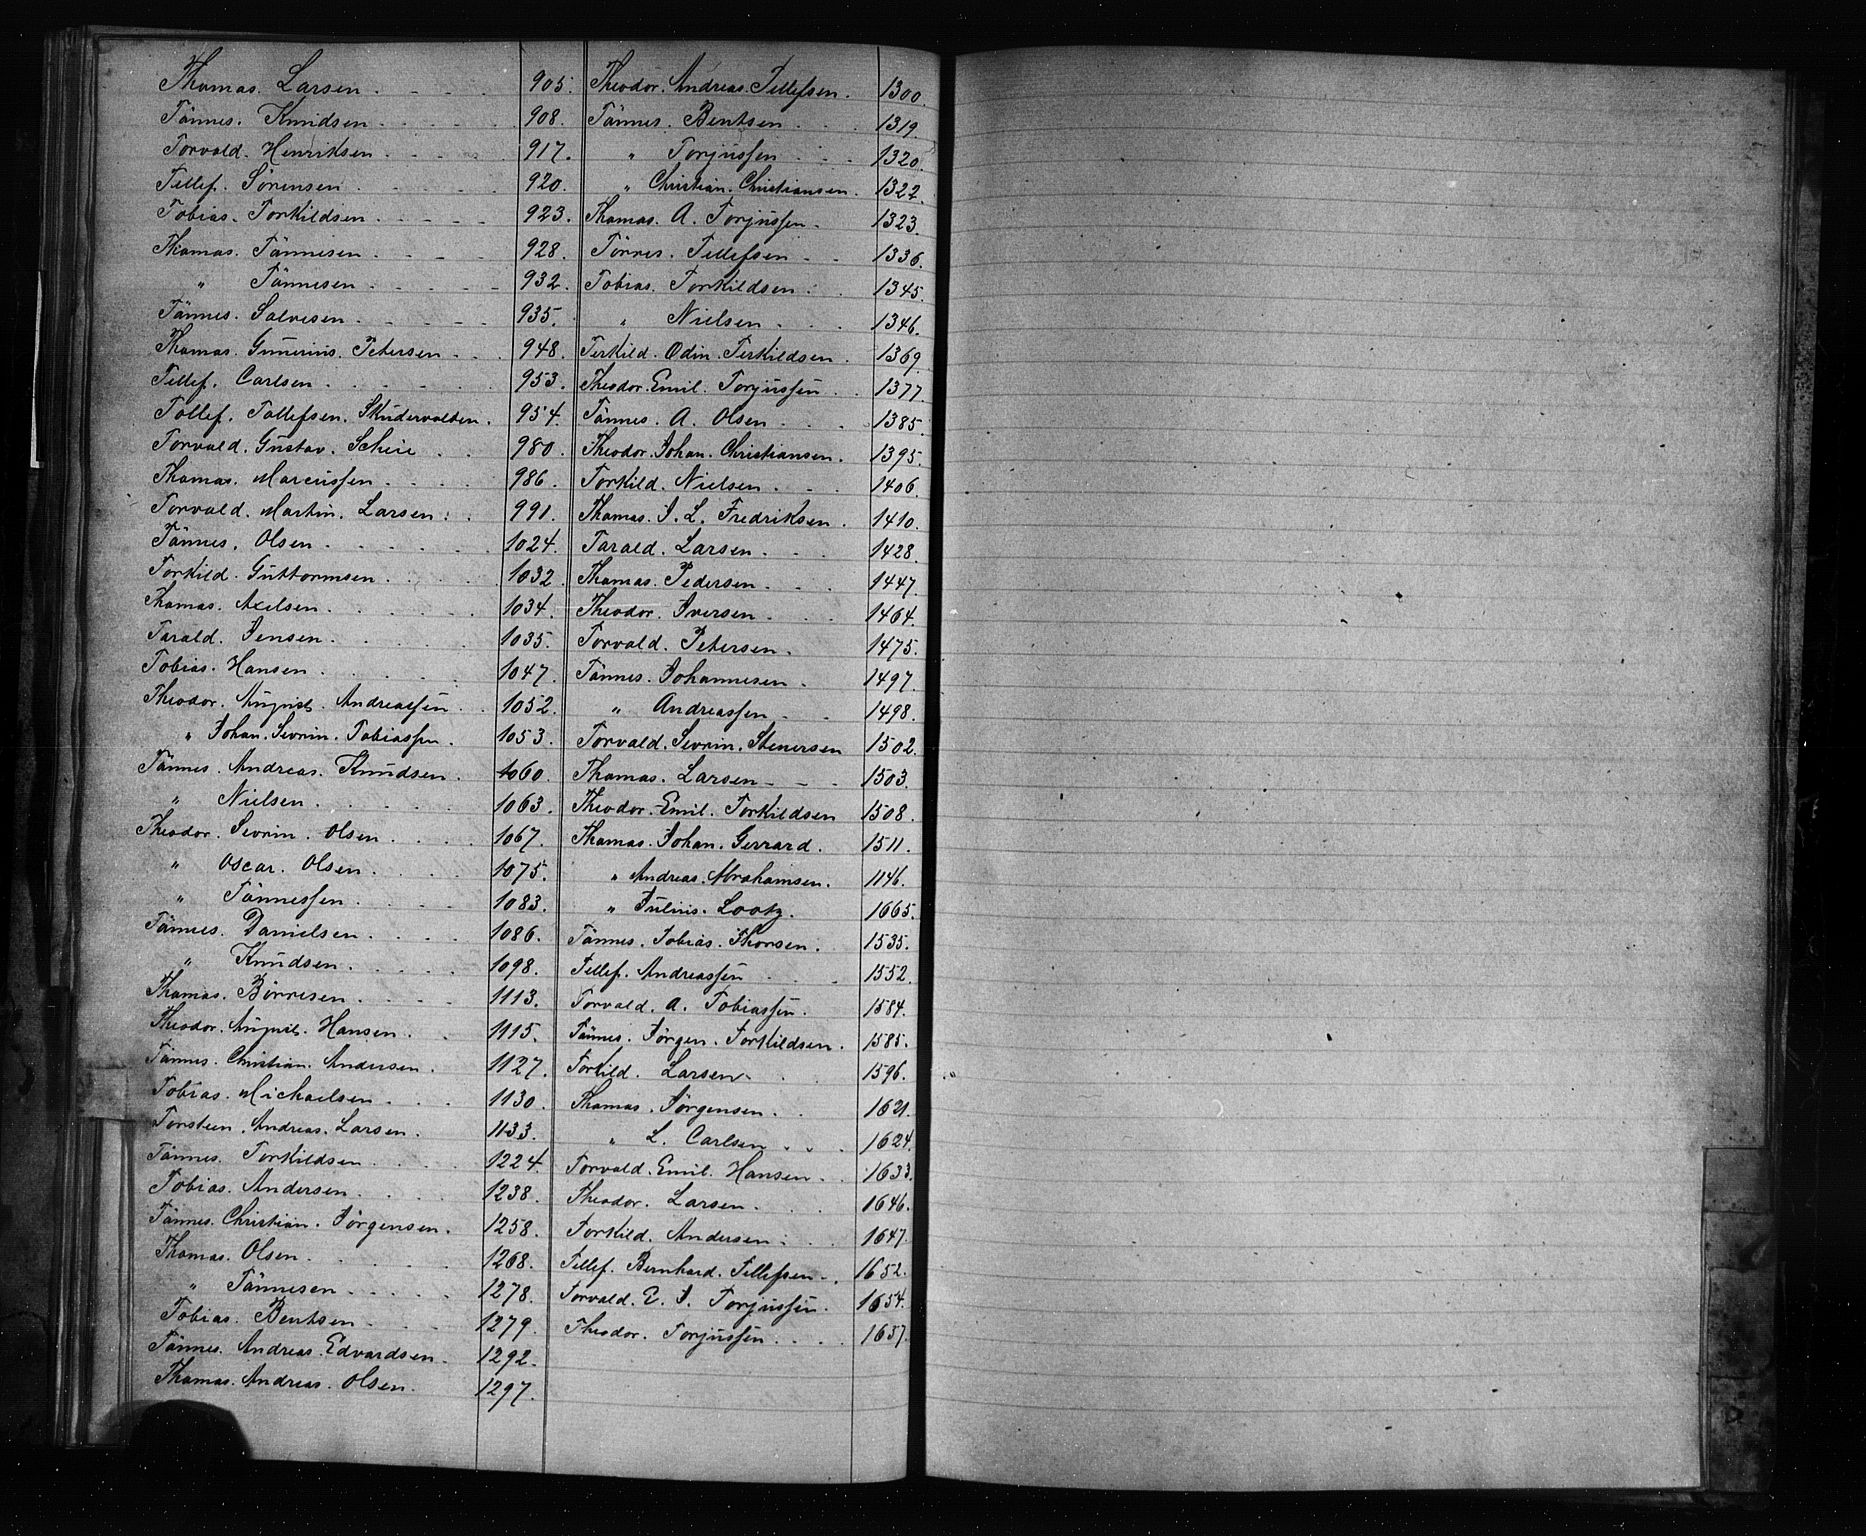 Thomas. Larsen. 905.
Tönnes. Knudsen. 908.
Torvald. Henriksen. 917.
Tellef. Sørensen. 920.
Tobias. Torkildsen. 923.
Thomas. Tönnesen. 928.
" Tönnesen. 932.
Tönnes. Salvesen. 935.
Thomas. Gunerius. Petersen. 948.
Tellef. Carlsen. 953.
Tollef. Tollefsen. 954.
Torvald. Gustav. 980.
Thomas. Marcussen. 986.
Torvald. Martin. Larsen. 991.
Tönnes. Olsen. 1024.
Torkild. Guttormsen. 1032.
Thomas. Axelsen. 1034.
Tarald. Jensen. 1035.
Tobias. Hansen. 1047.
Theodor. August. Andreassen. 1052.
" Johan. Sevrin. Tobiassen. 1053.
Tönnes. Andreas. Knudsen. 1060.
" Nielsen. 1063.
Theodor. Sevrin. Olsen. 1067.
" Oscar. Olsen. 1075.
" Tönnessen. 1083.
Tönnes. Danielsen. 1086.
" Knudsen. 1098.
Thomas. Börresen. 1113.
Theodor. August. Hansen. 1115.
Tönnes. Christian. Andersen. 1127.
Tobias. Michaelsen. 1130.
Torsteen. Andreas. Larsen. 1133.
Tönnes. Torkildsen. 1224.
Tobias. Andersen. 1238.
Tönnes. Christian. Jörgensen. 1258.
Thomas. Olsen. 1268.
" Tönnesen. 1278.
Tobias. Bentsen. 1279.
Tönnes. Andreas. Edvardsen. 1292.
Thomas. Andreas. Olsen. 1297.
Theodor. Andreas. Tellefsen. 1300.
Tönnes. Bentsen. 1319.
" Torjussen. 1320.
" Christian. Christiansen. 1322.
Thomas. A. Torjussen. 1323.
Törres. Tellefsen. 1336.
Tobias. Torkildsen. 1345.
" Nielsen. 1346.
Terkild. Odin. Terkildsen. 1369.
Theodor. Emil. Torjussen. 1377.
Tönnes. A. Olsen. 1385.
Theodor. Johan. Christiansen. 1395.
Torkild. Nielsen. 1406.
Thomas. J. L. Fredriksen. 1410.
Tarald. Larsen. 1428.
Thomas. Pedersen. 1447.
Theodor. Iversen. 1464.
Torvald. Petersen. 1475.
Tönnes. Johannesen. 1497.
" Andreassen. 1498.
Torvald. Sevrin. Stenersen 1502.
Thomas. Larsen. 1503.
Theodor. Emil. Torkildsen 1508.
Thomas. Johan. Gerrard. 1511.
" Andreas. Abrahamsen. 1146.
" Julius. Lootz. 1665.
Tönnes. Tobias. Thorsen. 1535.
Tellef. Andreassen 1552.
Torvald. A. Tobiassen. 1584.
Tönnes. Jörgen. Torkildsen. 1585.
Torkild. Larsen. 1596.
Thomas. Jörgensen. 1621.
" L. Carlsen. 1624.
Torvald. Emil. Hansen. 1633.
Theodor. Larsen. 1646.
Torkild. Andersen. 1647.
Tellef. Bernhard. Tellefsen. 1652.
Torvald. E. J. Torjussen. 1654.
Theodor. Torjussen. 1657.